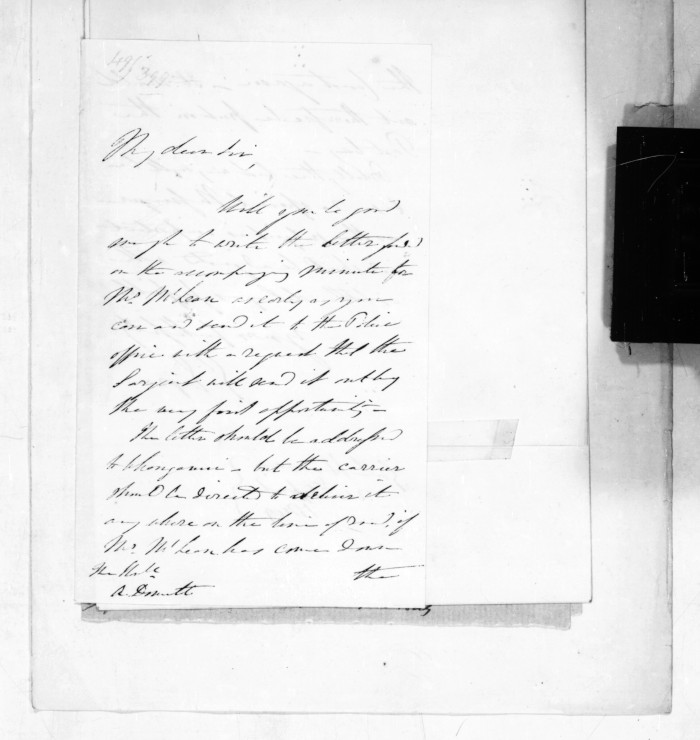 49/399
My dear Sir,
Will you be good
enough to write the letter
on the accompanying minute for
Mr. McLean as early as you
can and send it to the Police
office with a request that the
Sergeant will send it out by
the very first opportunity -
The letter should be addressed
to - but the carrier
should be directed to deliver it
any where on the line of road, if
Mr. McLean has come down
the
The Hble
A. Domett